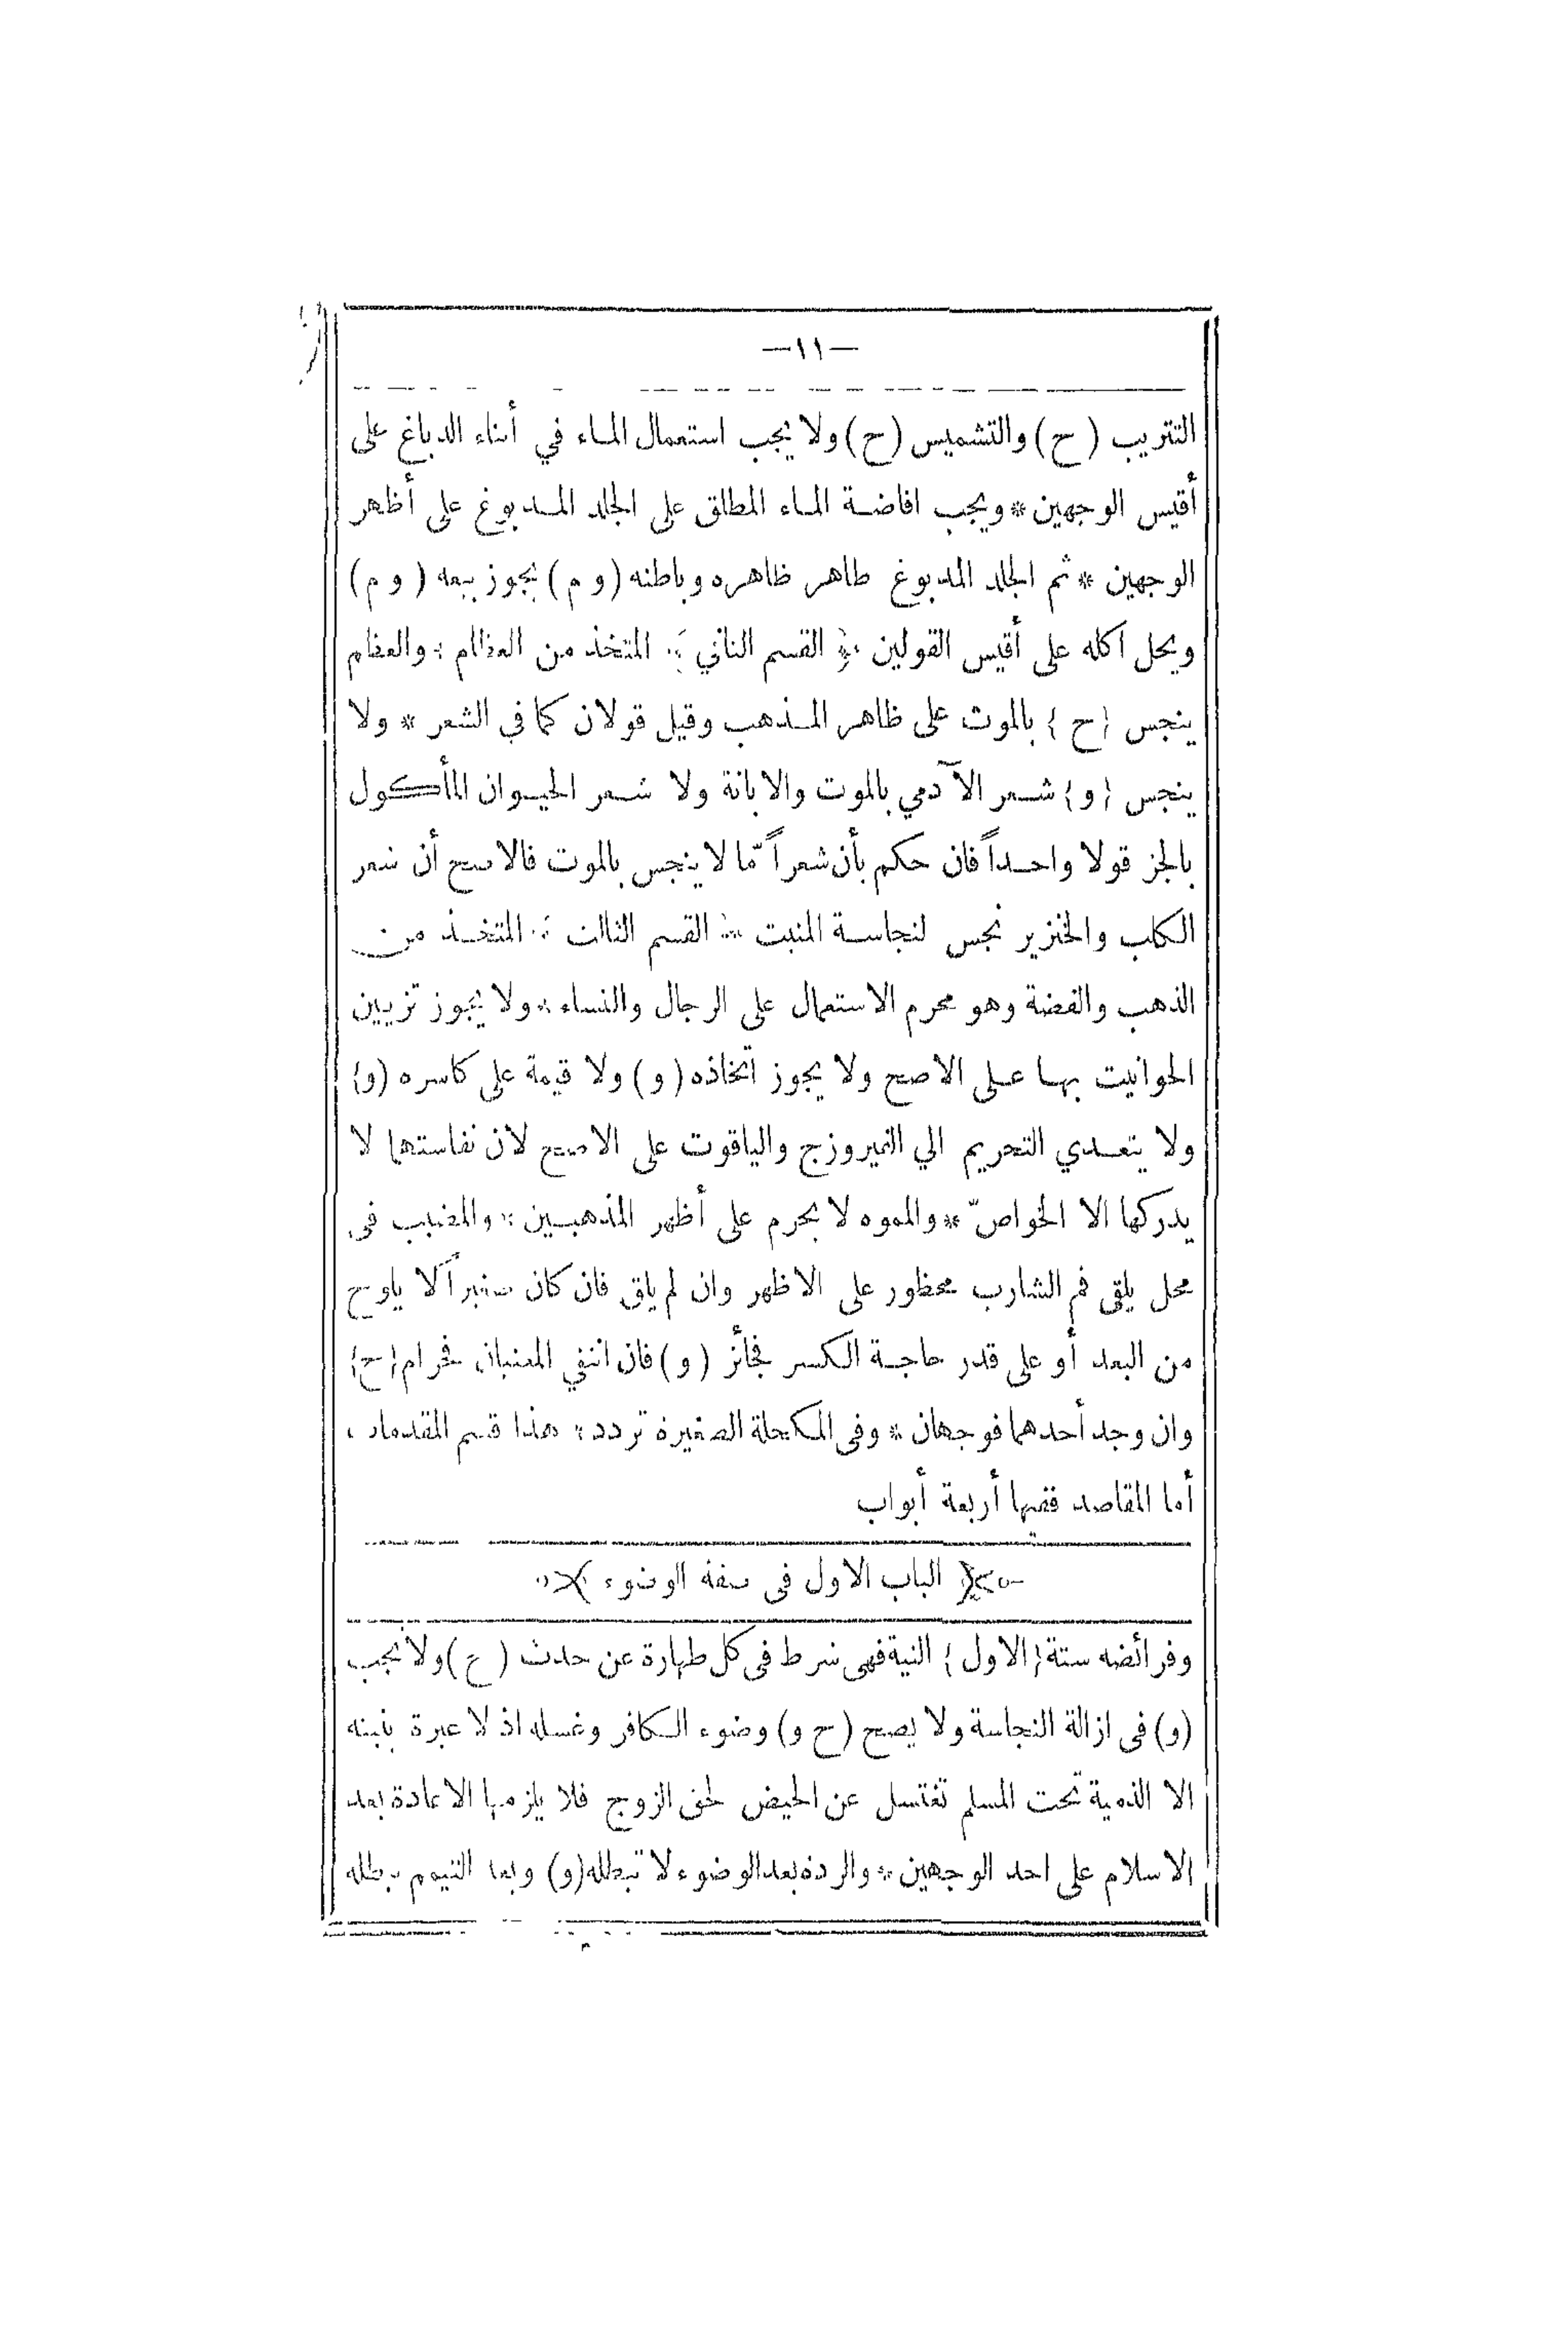 —١١—
التتريب (ح) والتشميس (ح) ولا يجب استعمال الماء في أثناء الدباغ على
أقيس الوجهين * ويجب افاضة الماء المطلق على الجلد المدبوغ على أظهر
الوجهين * ثم الجلد المدبوغ طاهر ظاهره وباطنه (و م) يجوز بيعه (و م)
ويحل اكله على أقيس القولين * القسم الثاني * المتخذ من العظام * والعظام
ينجس (ح) بالموت على ظاهر المذهب وقيل قولان كما في الشعر * ولا
ينجس (و) شعر الآدمي بالموت والابانة ولا شعر الحيوان المأكول
بالجز قولا واحداً فان حكم بأن شعراً مّا لا ينجس بالموت فالاصح أن شعر
الكلب والخنزير نجس لنجاسة المنبت * القسم الثالث * المتخذ من
الذهب والفضة وهو محرم الاستعمال على الرجال والنساء * ولا يجوز تزيين
الحوانيت بها على الاصح ولا يجوز اتخاذه (و) ولا قيمة على كاسره (و)
ولا يتعدي التحريم الي الفيروزج والياقوت على الاصح لان نفاستهما لا
يدركها الا الخواصّ * والمموه لا يحرم على أظهر المذهبين * والمضبب في
محل يلقى فم الشارب محظور على الاظهر وان لم يلق فان كان صغيراً لا يلوح
من البعد أو على قدر حاجة الكسر فجائز (و) فان انتفي المعنيان فحرام (ح)
وان وجد أحدهما فوجهان * وفى المكحلة الصغيرة تردد * هذا قسم المقدمات *
أما المقاصد ففيها أربعة أبواب
الباب الاول فى صفة الوضوء
وفرائضه ستة (الاول) النية فهى شرط فى كل طهارة عن حدث (ح) ولا تجب
(و) فى ازالة النجاسة ولا يصح (ح و) وضوء الكافر وغسله اذ لا عبرة بنيته
الا الذمية تحت المسلم تغتسل عن الحيض لحق الزوج فلا يلزمها الاعادة بعد
الاسلام على احد الوجهين * والردة بعد الوضوء لا تبطله (و) وبعد التيمم يبطله